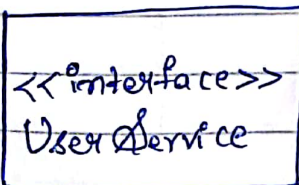 <<interface>>
UserService